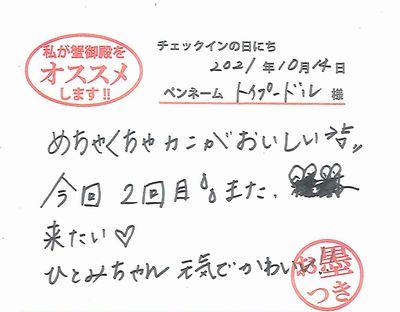 私が蟹御殿を
オススメ
します!!
チェックインの日にち
2021年10月14日
ペンネーム トイプードル 様
めちゃくちゃカニがおいしい
今回2回目 また、
来たい♡
ひとみちゃん 元気でかわいい
お墨
つき